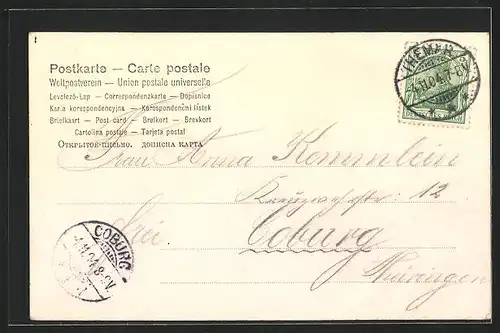 Postkarte — Carte postale
Weltpostverein — Union postale universelle
Levelező-Lap — Correspondenzkarte — Dopisnice
Karta korespondencyjna — Korespondenční lístek
Briefkaart — Post card — Brefkort — Brevkort
Cartolina postale — Tarjeta postal
Открытое письмо. дописна карта
THEMAR
4.11.04.7-8
Frau Anna Kommlein
12
Frei Coburg
Thüringen
COBURG
4.11.04.8-9V.